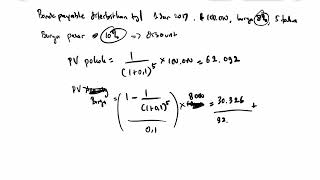 Bonds payable diterbitkan tgl 1 Jan 2017, $ 100.000, bunga 8%, 5 tahun
Bunga pasar = 10% → discount
PV pokok = 1 / (1+0,1)^5 × 100.000 = 62.092
PV Bunga = (1 - 1 / (1+0,1)^5) / 0,1 × 8000 = 30.326 +
92.